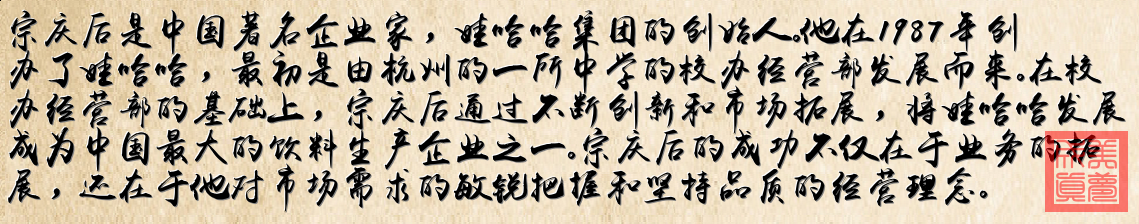 宗庆后是中国著名企业家，娃哈哈集团的创始人。他在1987年创
办了娃哈哈，最初是由杭州的一所中学的校办经营部发展而来。在校
办经营部的基础上，宗庆后通过不断创新和市场拓展，将娃哈哈发展
成为中国最大的饮料生产企业之一。宗庆后的成功不仅在于业务的拓
展，还在于他对市场需求的敏锐把握和坚持品质的经营理念。